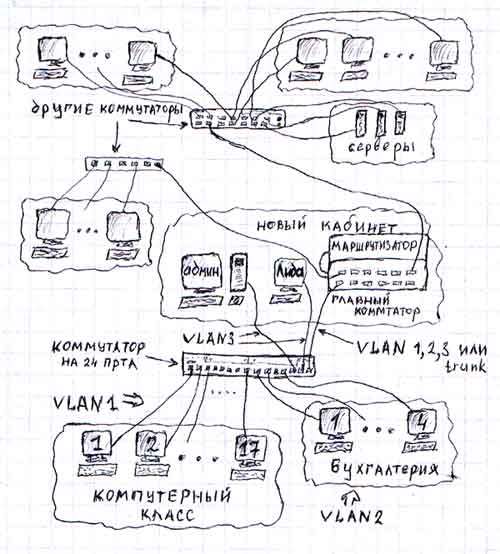 другие коммутаторы
серверы
новый кабинет
маршрутизатор
админ
Лида
главный
коммтатор
VLAN3
VLAN 1,2,3 или
trunk
коммутатор
на 24 прта
VLAN1
....
1
2
17
1
4
компутерный
класс
бухгалтерия
VLAN2